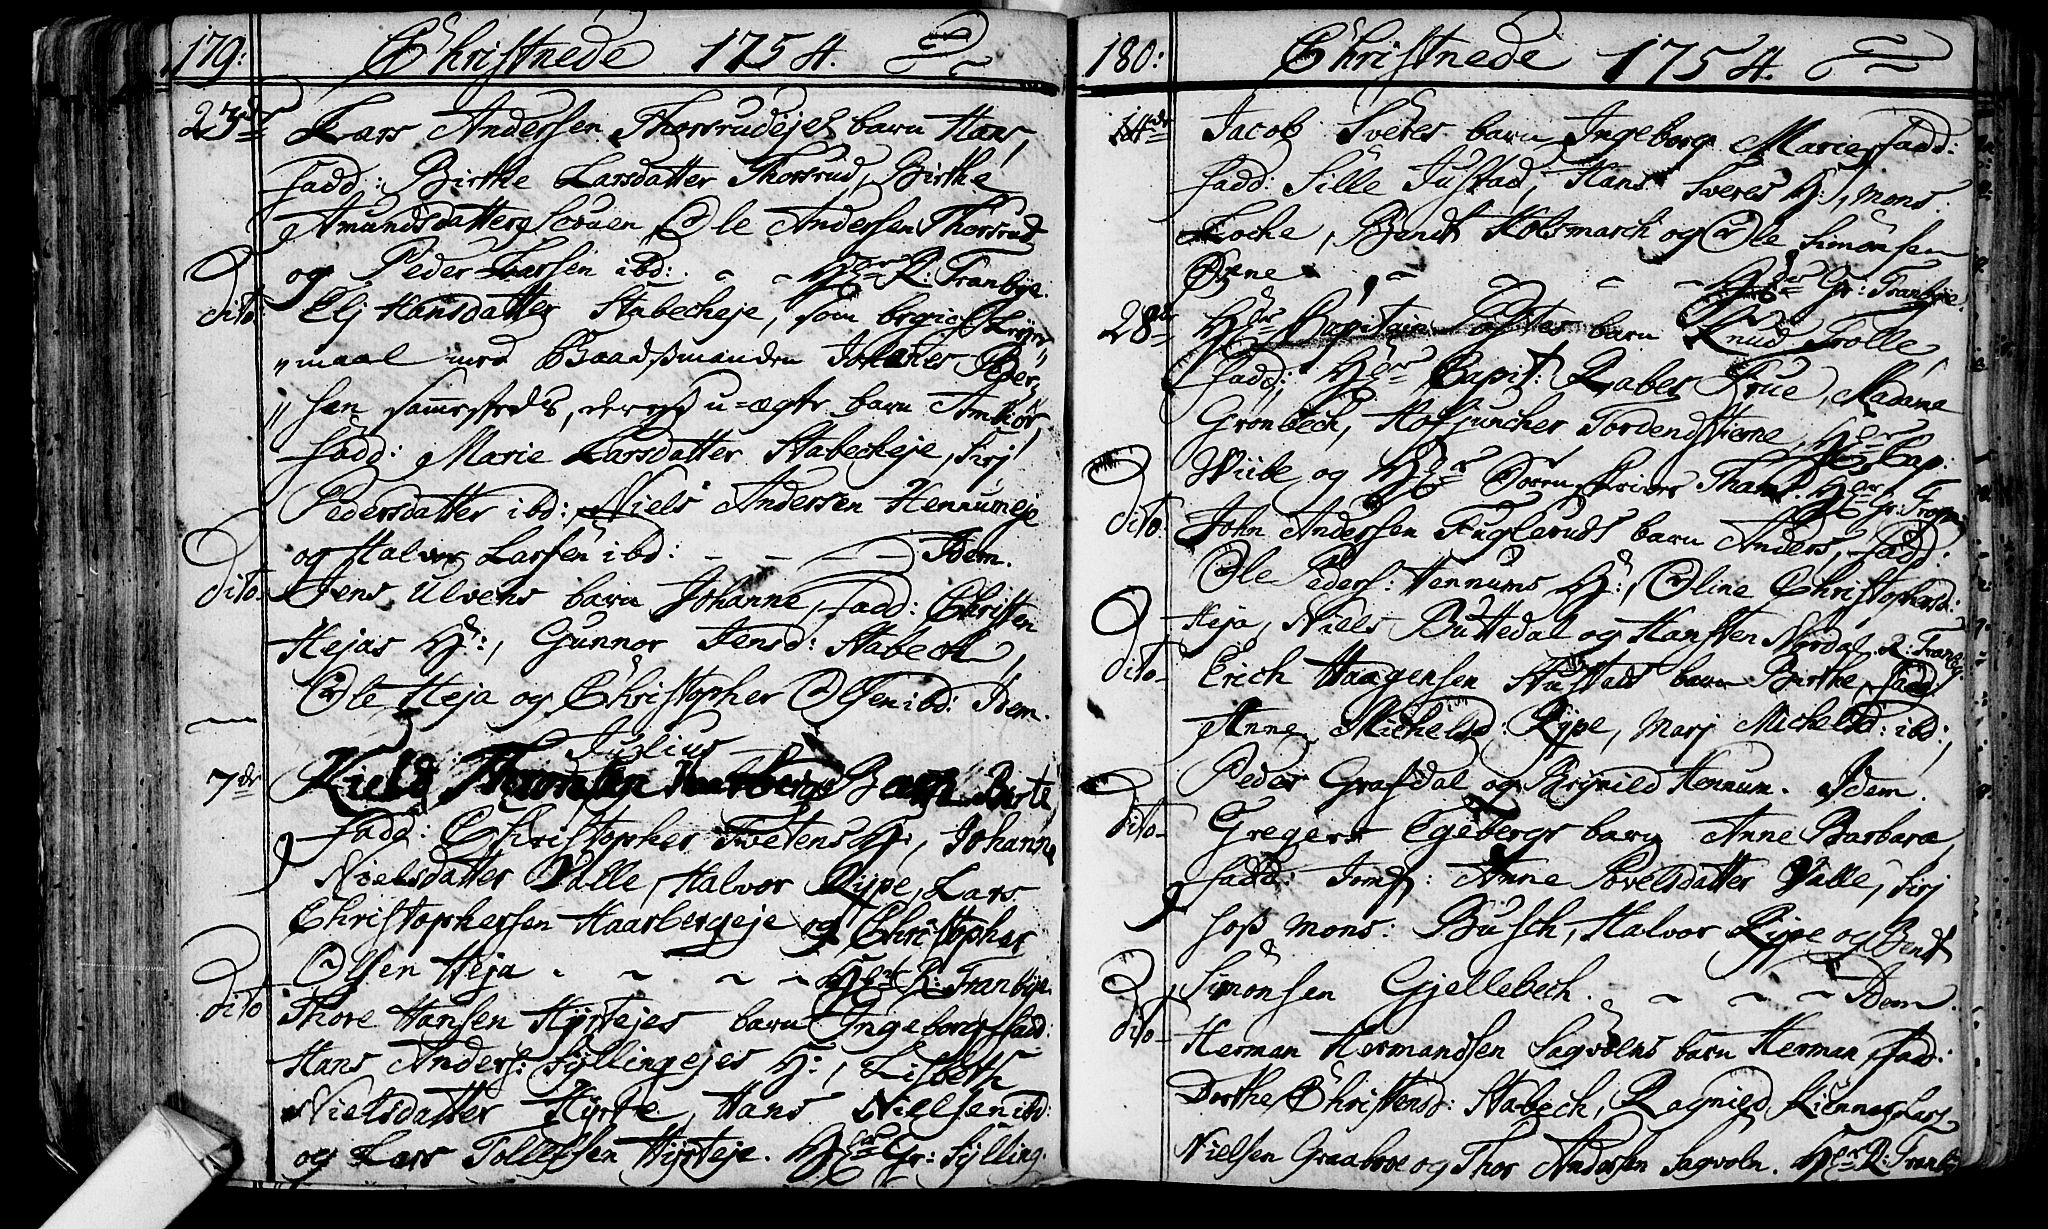 179: Christnede 1754.
23de Lars Andersen Thorsrudejes barn Hans,
fadd: Birthe Larsdatter Thorsrud, Birthe
Amundsdatter Scouen, Ole Andersen Thorsrud
og Peder Larsen ibd: - - Her R: Tranbye.
dito Elj Hansdatter Stabecheje, som begich Leyer
"maal med Baadsmanden Johanes Peder"
"sen samesteds, deres u=ægte barn Anthor,
fadd: Marie Larsdatter Stabecheje, Sirj
Pedersdatter ibd: Niels Andersen Hennumeje
og Halvor Larsen ibd: - - - Idem.
dito- Jens Ulvens barn Johanne, fadd: Christen
Hejas H:, Gunnor Jensd: Stabech,
Ole Heja og Christopher Olsen ibd: Idem.
Julius
7de Kield Thorsten Haarberge Barn Berte
fadd: Christopher Tvetens H:, Johanne
Nielsdatter Valle, Halvor Rype, Lars
Christophersen Haarbergeje og Christopher
Olsen Heja - - - - Her R: Tranbye.
dito Thore Hansen Hyrtejes barn Ingeborg, fadd:
Hans Anders: Syllingejes H:, Lisbeth
Nielsdatter Hyrte, Hans Nielsen ibd:
og Lars Tollefsen Hyrteje. Her Gr: Sylling.
180: Christnede 1754.
14de Jacob Sveres barn Ingeborg Marie, fadd:
fadd: Sille Justad, Hans Sveres H:, Mons.
Koche, Bendt Holtsmarch og Ole Simonsen
Øene - - - Her Gr: Tranbye.
28de Hr Capitain barn Knud Trolle,
fadd: Her Capit: Rabes Frue, Madame
Gronbech, Hofjuncher Tordenstierne, Her Cap:
Wiibe og Her Soren Skriver Tham. Her Gr: Frogn.
dito John Andersen Fuglerudt barn Anders, fadd:
Ole Peders: Hennums H:, Oline Christophersd:
Heja, Niels Buttedal og Hansten Nordal. R: Tranby.
dito- Erich Haagensen Justads barn Birthe, fadd:
Anne Michelsd: Rype, Marj Michelsd: ibd:,
Peder Grafsdal og Brynild Hennum. Idem.
dito- Gregers Egebergs barn Anne Barbara,
fadd: Jomf: Anne Povelsdatter Valle, Sirj
hoss Mons: Busch, Halvor Rype og Bendt
Simonsen Gjellebech. - - - Idem.
dito- Herman Hermandsen Sagvolns barn Herman, fadd:
Dorthe Christensd: Stabech, Ragnild Kiennas, Lars
Nielsen Graabroe og Thor Andersen Sagvoln. Her R: Tranby